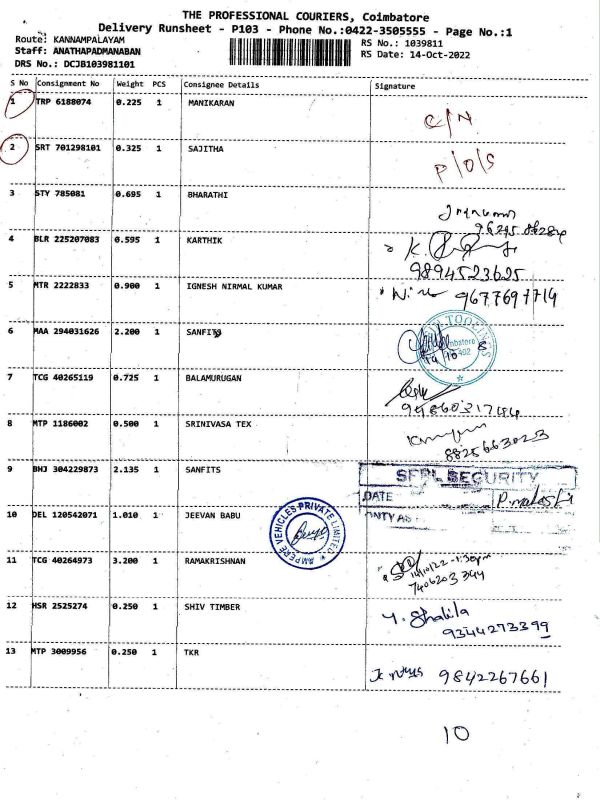 THE PROFESSIONAL COURIERS, Coimbatore
Delivery Runsheet - P103 - Phone No.:0422-3505555 - Page No.:1
Route: KANNAMPALAYAM
Staff: ANATHAPADMANABAN
DRS No.: DCJB103981101
RS No.: 1039811
RS Date: 14-Oct-2022
S No Consignment No Weight PCS Consignee Details Signature
1 TRP 6188074 0.225 1 MANIKARAN C/N
2 SRT 701298101 0.325 1 SAJITHA P/O/S
3 STY 785081 0.695 1 BHARATHI
4 BLR 225207083 0.595 1 KARTHIK
9894523625
5 MTR 2222833 0.900 1 IGNESH NIRMAL KUMAR 9677697714
6 MAA 294031626 2.200 1 SANFITS
TOOLINGS
7 TCG 40265119 0.725 1 BALAMURUGAN
8 MTP 1186002 0.500 1 SRINIVASA TEX
8825663023
9 BHJ 304229873 2.135 1 SANFITS SFPL SECURITY
DATE
10 DEL 120542071 1.010 1 JEEVAN BABU
AMPERE VEHICLES PRIVATE LIMITED
11 TCG 40264973 3.200 1 RAMAKRISHNAN 14/10/22-1:30pm
7406203344
12 HSR 2525274 0.250 1 SHIV TIMBER Y. Shalila
9344273399
13 MTP 3009956 0.250 1 TKR 9842267661
10